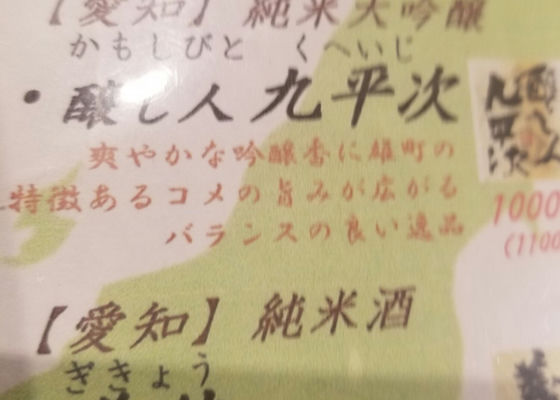 【愛知】純米大吟醸
かもしびと くへいじ
・醸し人 九平次
爽やかな吟醸香に雄町の
特徴あるコメの旨みが広がる
バランスの良い逸品
1000
(1100
【愛知】純米酒
ぎきょう